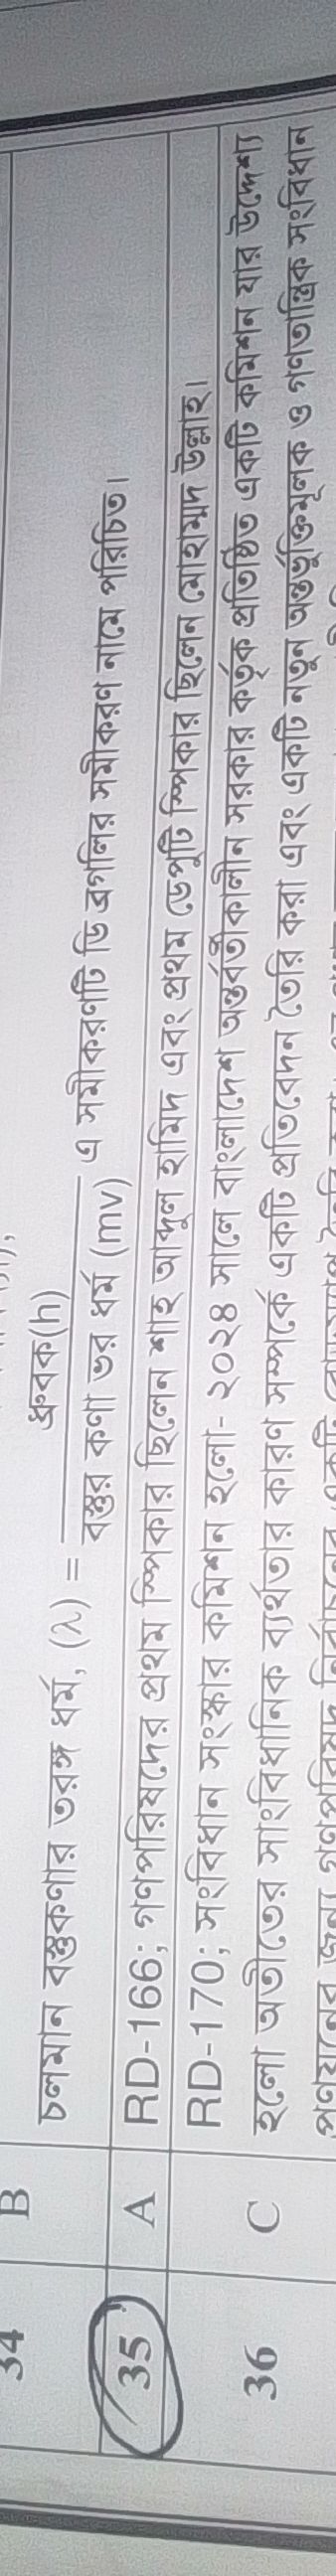 34 B
ধ্রুবক(h)
চলমান বস্তুকণার তরঙ্গ ধর্ম, (λ) = এ সমীকরণটি ডি ব্রগলির সমীকরণ নামে পরিচিত।
বস্তুর কণা ভর ধর্ম (mv)
35 A RD-166; গণপরিষদের প্রথম স্পিকার ছিলেন শাহ আব্দুল হামিদ এবং প্রথম ডেপুটি স্পিকার ছিলেন মোহাম্মদ উল্লাহ।
RD-170; সংবিধান সংস্কার কমিশন হলো- ২০২৪ সালে বাংলাদেশ অন্তর্বর্তীকালীন সরকার কর্তৃক প্রতিষ্ঠিত একটি কমিশন যার উদ্দেশ্য
36 C হলো অতীতের সাংবিধানিক ব্যর্থতার কারণ সম্পর্কে একটি প্রতিবেদন তৈরি করা এবং একটি নতুন অন্তর্ভুক্তিমূলক ও গণতান্ত্রিক সংবিধান
প্রণয়নের জন্য গণপরিষদ নির্বাচনের একটি